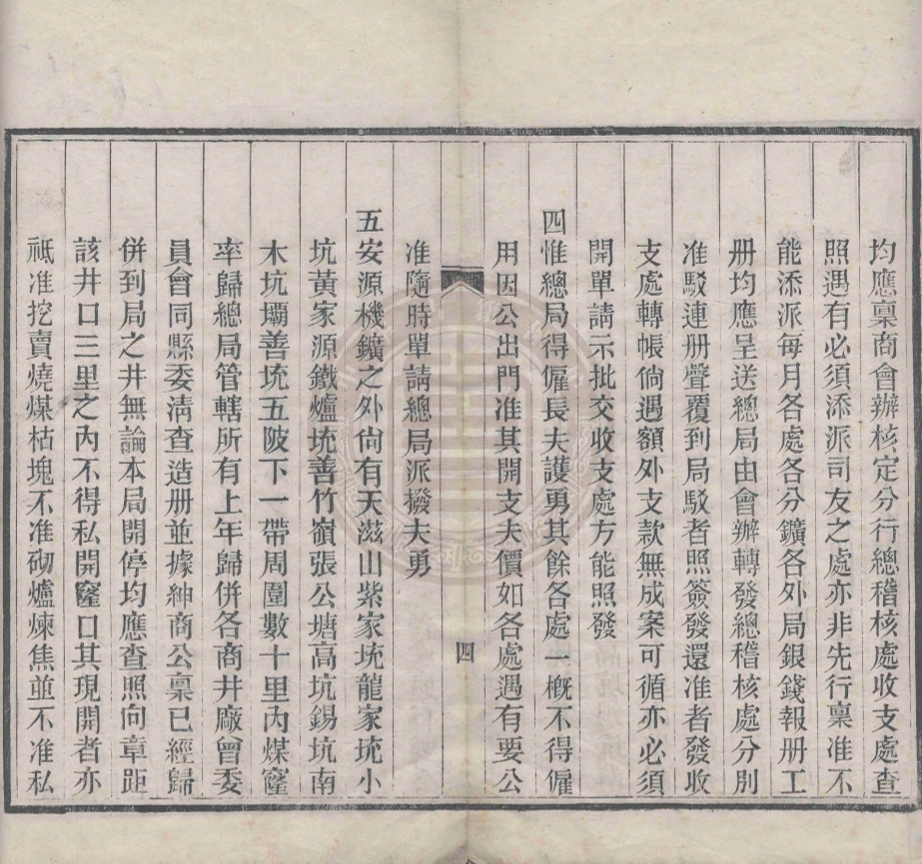 均應稟商會辦核定分行總稽核處收支處查
照遇有必須添派司友之處亦非先行稟准不
能添派每月各處各分鑛各外局銀錢報册工
册均應呈送總局由會辦轉發總稽核處分別
准駁連册聲覆到局駁者照簽發還准者發收
支處轉帳倘遇額外支款無成案可循亦必須
開單請示批交收支處方能照發
四惟總局得僱長夫護勇其餘各處一概不得僱
用因公出門准其開支夫價如各處遇有要公
四
准隨時單請總局派撥夫勇
五安源機鑛之外尙有天滋山紫家㘬龍家㘬小
坑黃家源鐵爐㘬善竹嶺張公塘高坑錫坑南
木坑壩善㘬五陂下一帶周圍數十里內煤窿
率歸總局管轄所有上年歸併各商井廠曾委
員會同縣委淸查造册並據紳商公稟已經歸
併到局之井無論本局開停均應查照向章距
該井口三里之內不得私開窿口其現開者亦
祗准挖賣燒煤枯塊不准砌爐煉焦並不准私